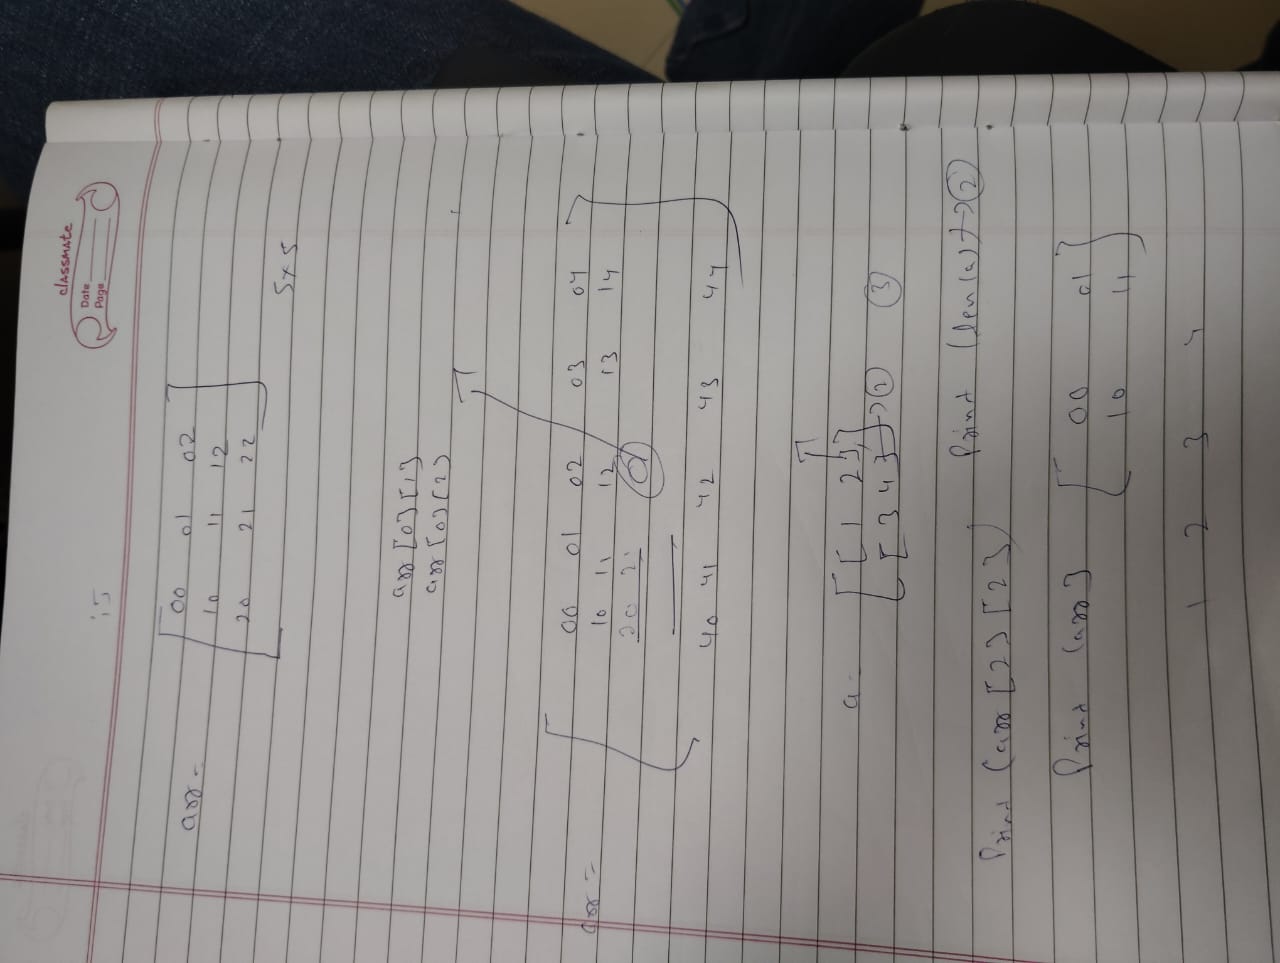 classmate
Date
Page
15
arr = [ 00 01 02
10 11 12
20 21 22 ]
5x5
arr[0][1]
arr[0][2]
arr = [ 00 01 02 03 04
10 11 12 13 14
20 21
40 41 42 43 44 ]
a = [ [ 1 2 ]
[ 3 4 ] ] → ② ③
Print (len(a)) → ②
Print (arr[2][2])
Print (arr) [ 00 01
10 11 ]
1 2 3 4